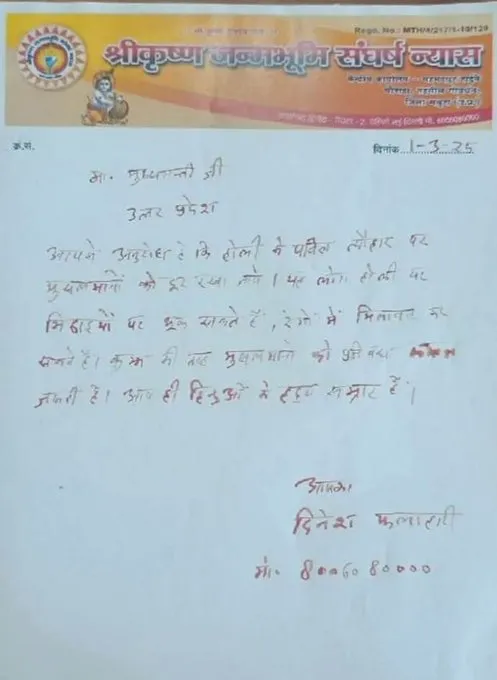 Rego. No.: MTH/4/217/1-10/129
श्रीकृष्ण जन्मभूमि संघर्ष न्यास
केन्द्रीय कार्यालय
जिला मथुरा (उ.प्र.)
क्र.सं.
दिनांक 1-3-25
मा. मुख्यमन्त्री जी
उत्तर प्रदेश
आपसे अनुरोध है कि होली के पवित्र त्यौहार पर
मुसलमानों को दूर रखा जाये। यह लोग होली पर
मिठाइयों पर थूक सकते हैं, रंगों में मिलावट कर
सकते हैं। कुम्भ की तरह मुसलमानों को
जरूरी है। आप ही हिन्दुओं के हृदय सम्राट हैं।
आपका
दिनेश फलाहारी
मो. 8006080000